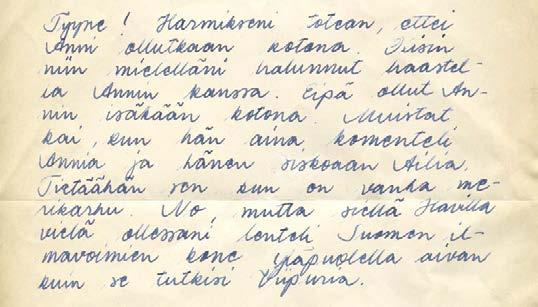 Tyyne! Harmikseni totean, ettei
Anni ollutkaan kotona. Olisin
niin mielelläni halunnut haastel-
la Annin kanssa. Eipä ollut An-
nin isäkään kotona. Muistat
kai, kun hän aina, komenteli
Annia ja hänen siskoaan Ailia.
Tietäähän sen kun on vanha me-
rikarhu. No, mutta siellä Havilla
vielä ollessani lenteli Suomen il-
mavoimien kone yläpuolella aivan
kuin se tutkisi Viipuria.